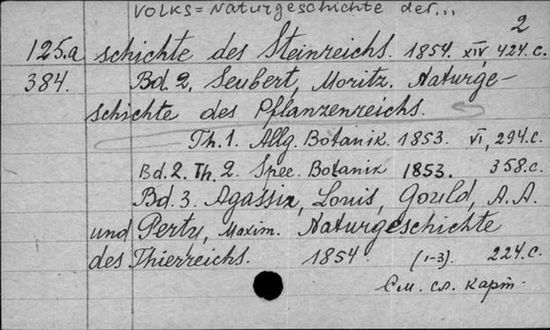 Volks=Naturgeschichte der...
2
125.a schichte des Steinreichs. 1854. XIV, 424.c.
384. Bd. 2. Seubert, Moritz. Naturge-
schichte des Pflanzenreichs.
Th. 1. Allg. Botanik. 1853. VI, 294.c.
Bd. 2. Th. 2. Spec. Botanik 1853. 358.c.
Bd. 3. Agassiz, Louis, Gould, A. A.
und Perty, Maxim. Naturgeschichte
des Thierreichs. 1854. (1-3). 224.c.
См. сл. карт.